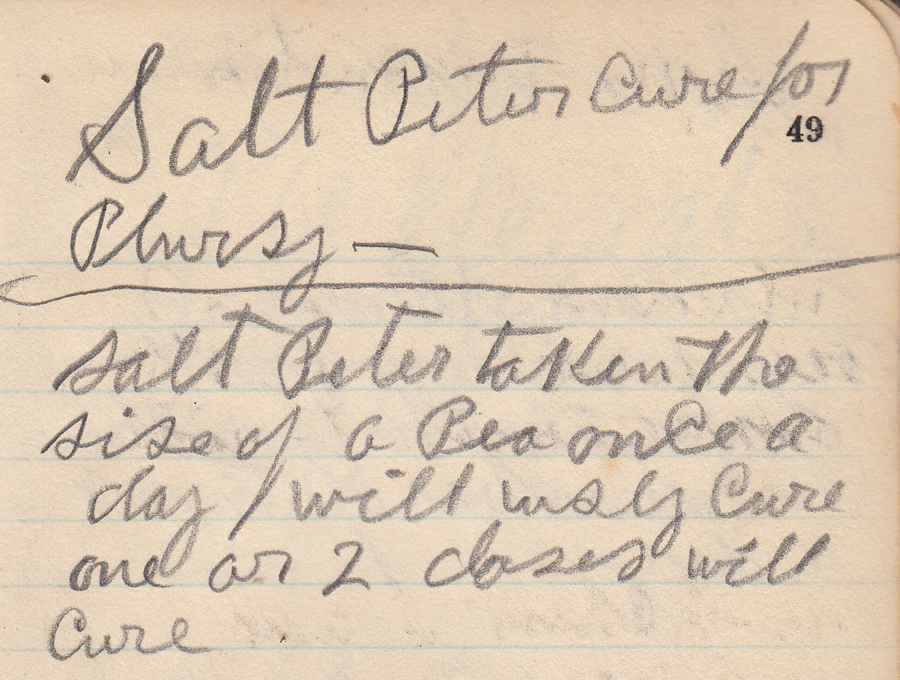 Salt Peter Cure for
49
Plursy —
salt Peter taken the
sise of a Pea once a
day will usly Cure
one or 2 doses will
Cure